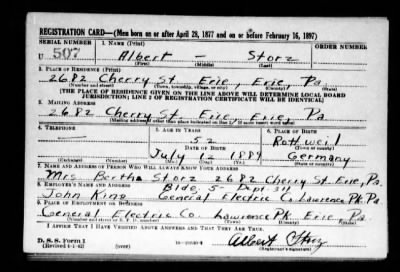 REGISTRATION CARD—(Men born on or after April 28, 1877 and on or before February 16, 1897)
SERIAL NUMBER 1. NAME (Print) ORDER NUMBER
U 507 Albert – Storz
(First) (Middle) (Last)
2. PLACE OF RESIDENCE (Print)
2682 Cherry St. Erie, Erie, Pa.
(Number and street) (Town, township, village, or city) (County) (State)
[THE PLACE OF RESIDENCE GIVEN ON THE LINE ABOVE WILL DETERMINE LOCAL BOARD
JURISDICTION; LINE 2 OF REGISTRATION CERTIFICATE WILL BE IDENTICAL]
3. MAILING ADDRESS
2682 Cherry St. Erie, Erie, Pa.
[Mailing address if other than place indicated on line 2. If same insert word same]
4. TELEPHONE 5. AGE IN YEARS 6. PLACE OF BIRTH
— 52 Rottweil
DATE OF BIRTH (Town or county)
July 12 1889 Germany
(Exchange) (Number) (Mo.) (Day) (Yr.) (State or country)
7. NAME AND ADDRESS OF PERSON WHO WILL ALWAYS KNOW YOUR ADDRESS
Mrs Bertha Storz 2682 Cherry St. Erie, Pa.
8. EMPLOYER'S NAME AND ADDRESS Bldg. 5- Dept. 311
John King General Electric Co. Lawrence Pk. Pa.
9. PLACE OF EMPLOYMENT OR BUSINESS
General Electric Co. Lawrence Pk. Erie, Pa.
(Number and street or R. F. D. number) (Town) (County) (State)
I AFFIRM THAT I HAVE VERIFIED ABOVE ANSWERS AND THAT THEY ARE TRUE.
D. S. S. Form 1
(Revised 4-1-42) (over) Albert Storz
(Registrant's signature)